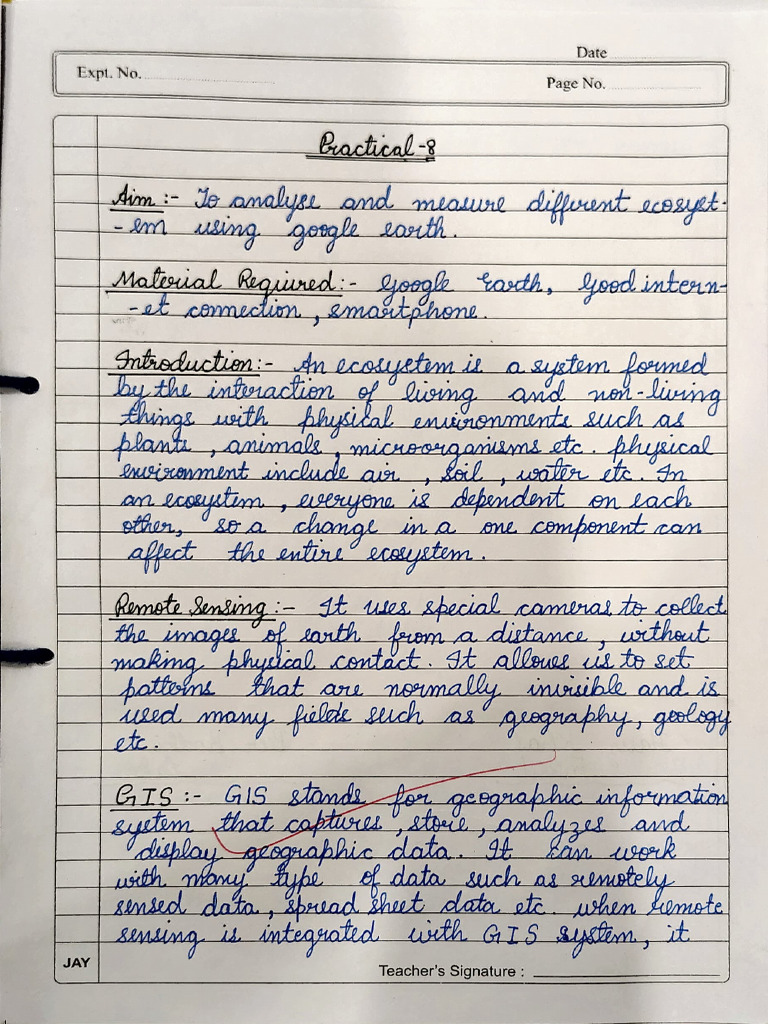 Date
Expt. No.
Page No.
Practical-8
Aim :- To analyse and measure different ecosyst-
-em using google earth.
Material Required:- Google Earth, Good intern-
-et connection, smartphone.
Introduction:- An ecosystem is a system formed
by the interaction of living and non-living
things with physical environments such as
plants, animals, microorganisms etc. physical
environment include air, soil, water etc. In
an ecosystem, everyone is dependent on each
other, so a change in a one component can
affect the entire ecosystem.
Remote Sensing:- It uses special cameras to collect
the images of earth from a distance, without
making physical contact. It allows us to set
patterns that are normally invisible and is
used many fields such as geography, geology
etc.
GIS :- GIS stands for geographic information
system that captures, store, analyzes and
display geographic data. It can work
with many type of data such as remotely
sensed data, spread sheet data etc. when remote
sensing is integrated with GIS system, it
JAY
Teacher's Signature :